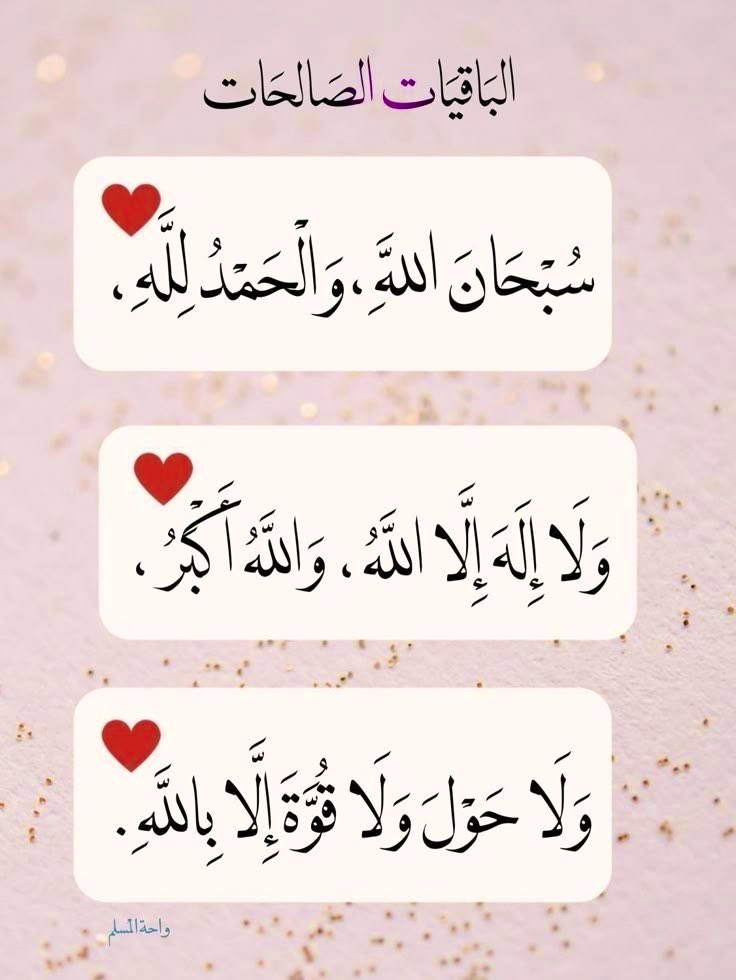 البَاقيَات الصَالحَات
سُبْحَانَ اللهَِّ، وَالْحَمْدُ لِلَّهِ،
وَلَا إِلَهَ إِلَّا اللَّهُ، وَاللَّهُ أَكْبَرُ،
وَلَا حَوْلَ وَلَا قُوَّةَ إِلَّا بِاللَّهِ.
واحة المسلم